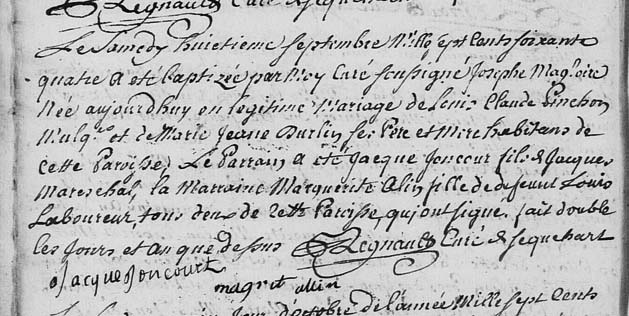 Regnault Curé de Sequehart
Le Samedy huitieme Septembre Mil Sept Cents Soixante
quatre a été baptizée par Moy Curé soussigné Josephe Magloire
Née aujourdhuy en legitime Mariage de Louis Claude Pinchon
Mulq.r et de Marie Jeane Durlin ses Pere et Mere habitans de
cette Paroisse, Le Parrain a été Jacque Joncour fils de Jacques
Mareschal, la Marraine Marguerite Alin fille de defeunt Louis
Laboureur, tous deux de cette Paroisse, qui ont signé, fait double
les Jours et an que dessus Regnault Curé de Sequehart
Jacque Joncourt
magrit allin
Jour d'octobre de l'année Mille Sept Cents